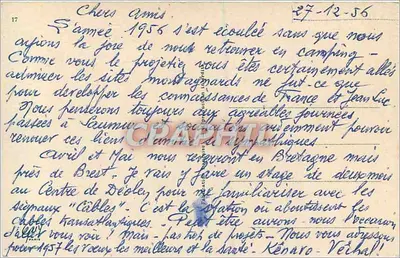 17
27-12-56
Chers amis
L'année 1956 s'est écoulée sans que nous
ayions la joie de nous retrouver en camping -
Comme vous le projetiez vous êtes certainement allés
admirer les sites montagnards ne fut-ce que
pour développer les connaissances de France et Jean Luc
Nous penserons toujours aux agréables journées
passées à Saumur évidemment pouvoir
renouer ces liens
Avril et Mai nous reverront en Bretagne mais
près de Brest. Je vais y faire un stage de deux mois
au Centre de pour me familiariser avec les
signaux "Câbles". C'est la station où aboutissent les
Câbles transatlantiques. - Peut être aurons-nous l'occasion
d'aller vous voir ! Mais - pas trop de projets - Nous vous adressons
pour 1957 les vœux les meilleurs et la santé.
CPARAMA